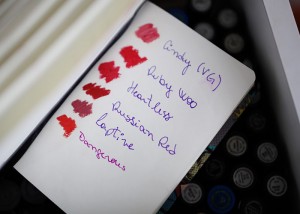 Cindy (VG)
Ruby Woo
Heartless
Russian Red
Captive
Dangerous